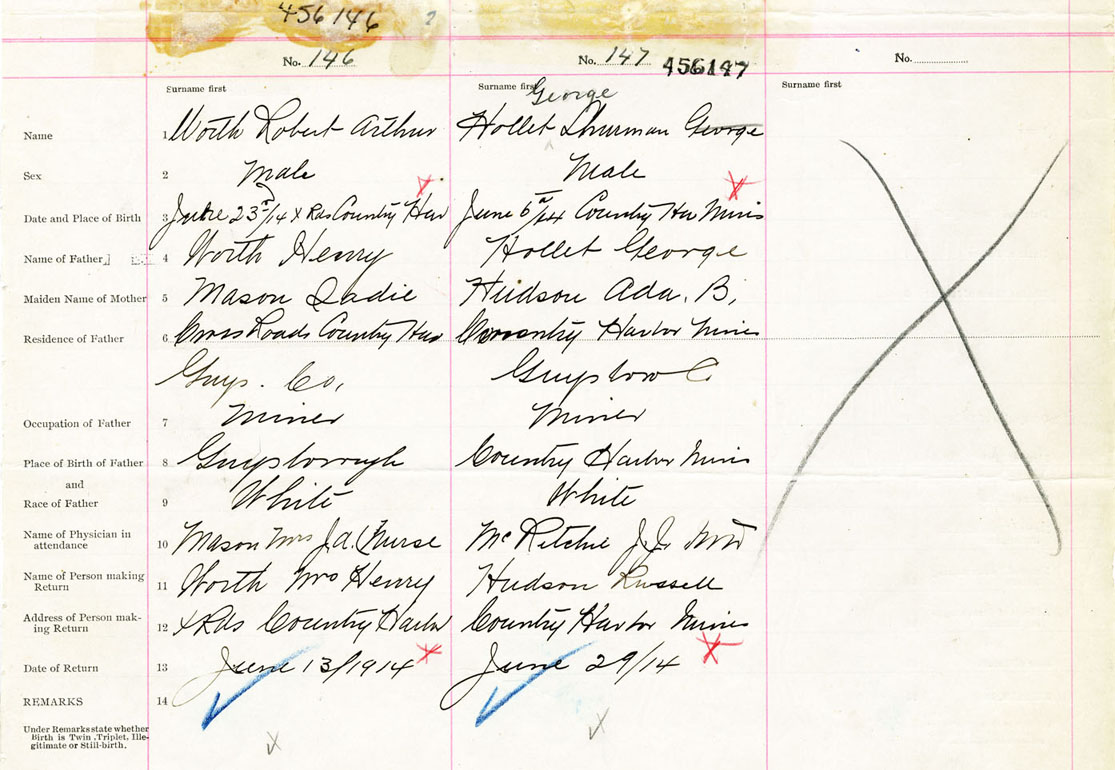 456146
No. 146
No. 147 456147
No.
Surname first
Surname first
Surname first
George
Name 1 Worth Robert Arthur Hollet Shurman George
Sex 2 Male Male
Date and Place of Birth 3 June 23rd/14 X Rds Country Har June 6th/14 Country Har Mines
Name of Father 4 Worth Henry Hollet George
Maiden Name of Mother 5 Mason Sadie Hudson Ada. B.
Residence of Father 6 Cross Roads Country Har Country Harbor Mines
Guys. Co. Guysboro C
Occupation of Father 7 Miner Miner
Place of Birth of Father 8 Guysborough Country Harbor Mines
and
Race of Father 9 White White
Name of Physician in
attendance 10 Mason Mrs J.A. (Nurse McRitchie J.J. MD
Name of Person making
Return 11 Worth Mrs Henry Hudson Russell
Address of Person mak-
ing Return 12 X Rds Country Harbor Country Harbor Mines
Date of Return 13 June 13/1914 June 29/14
REMARKS 14
Under Remarks state whether
Birth is Twin, Triplet, Ille-
gitimate or Still-birth.